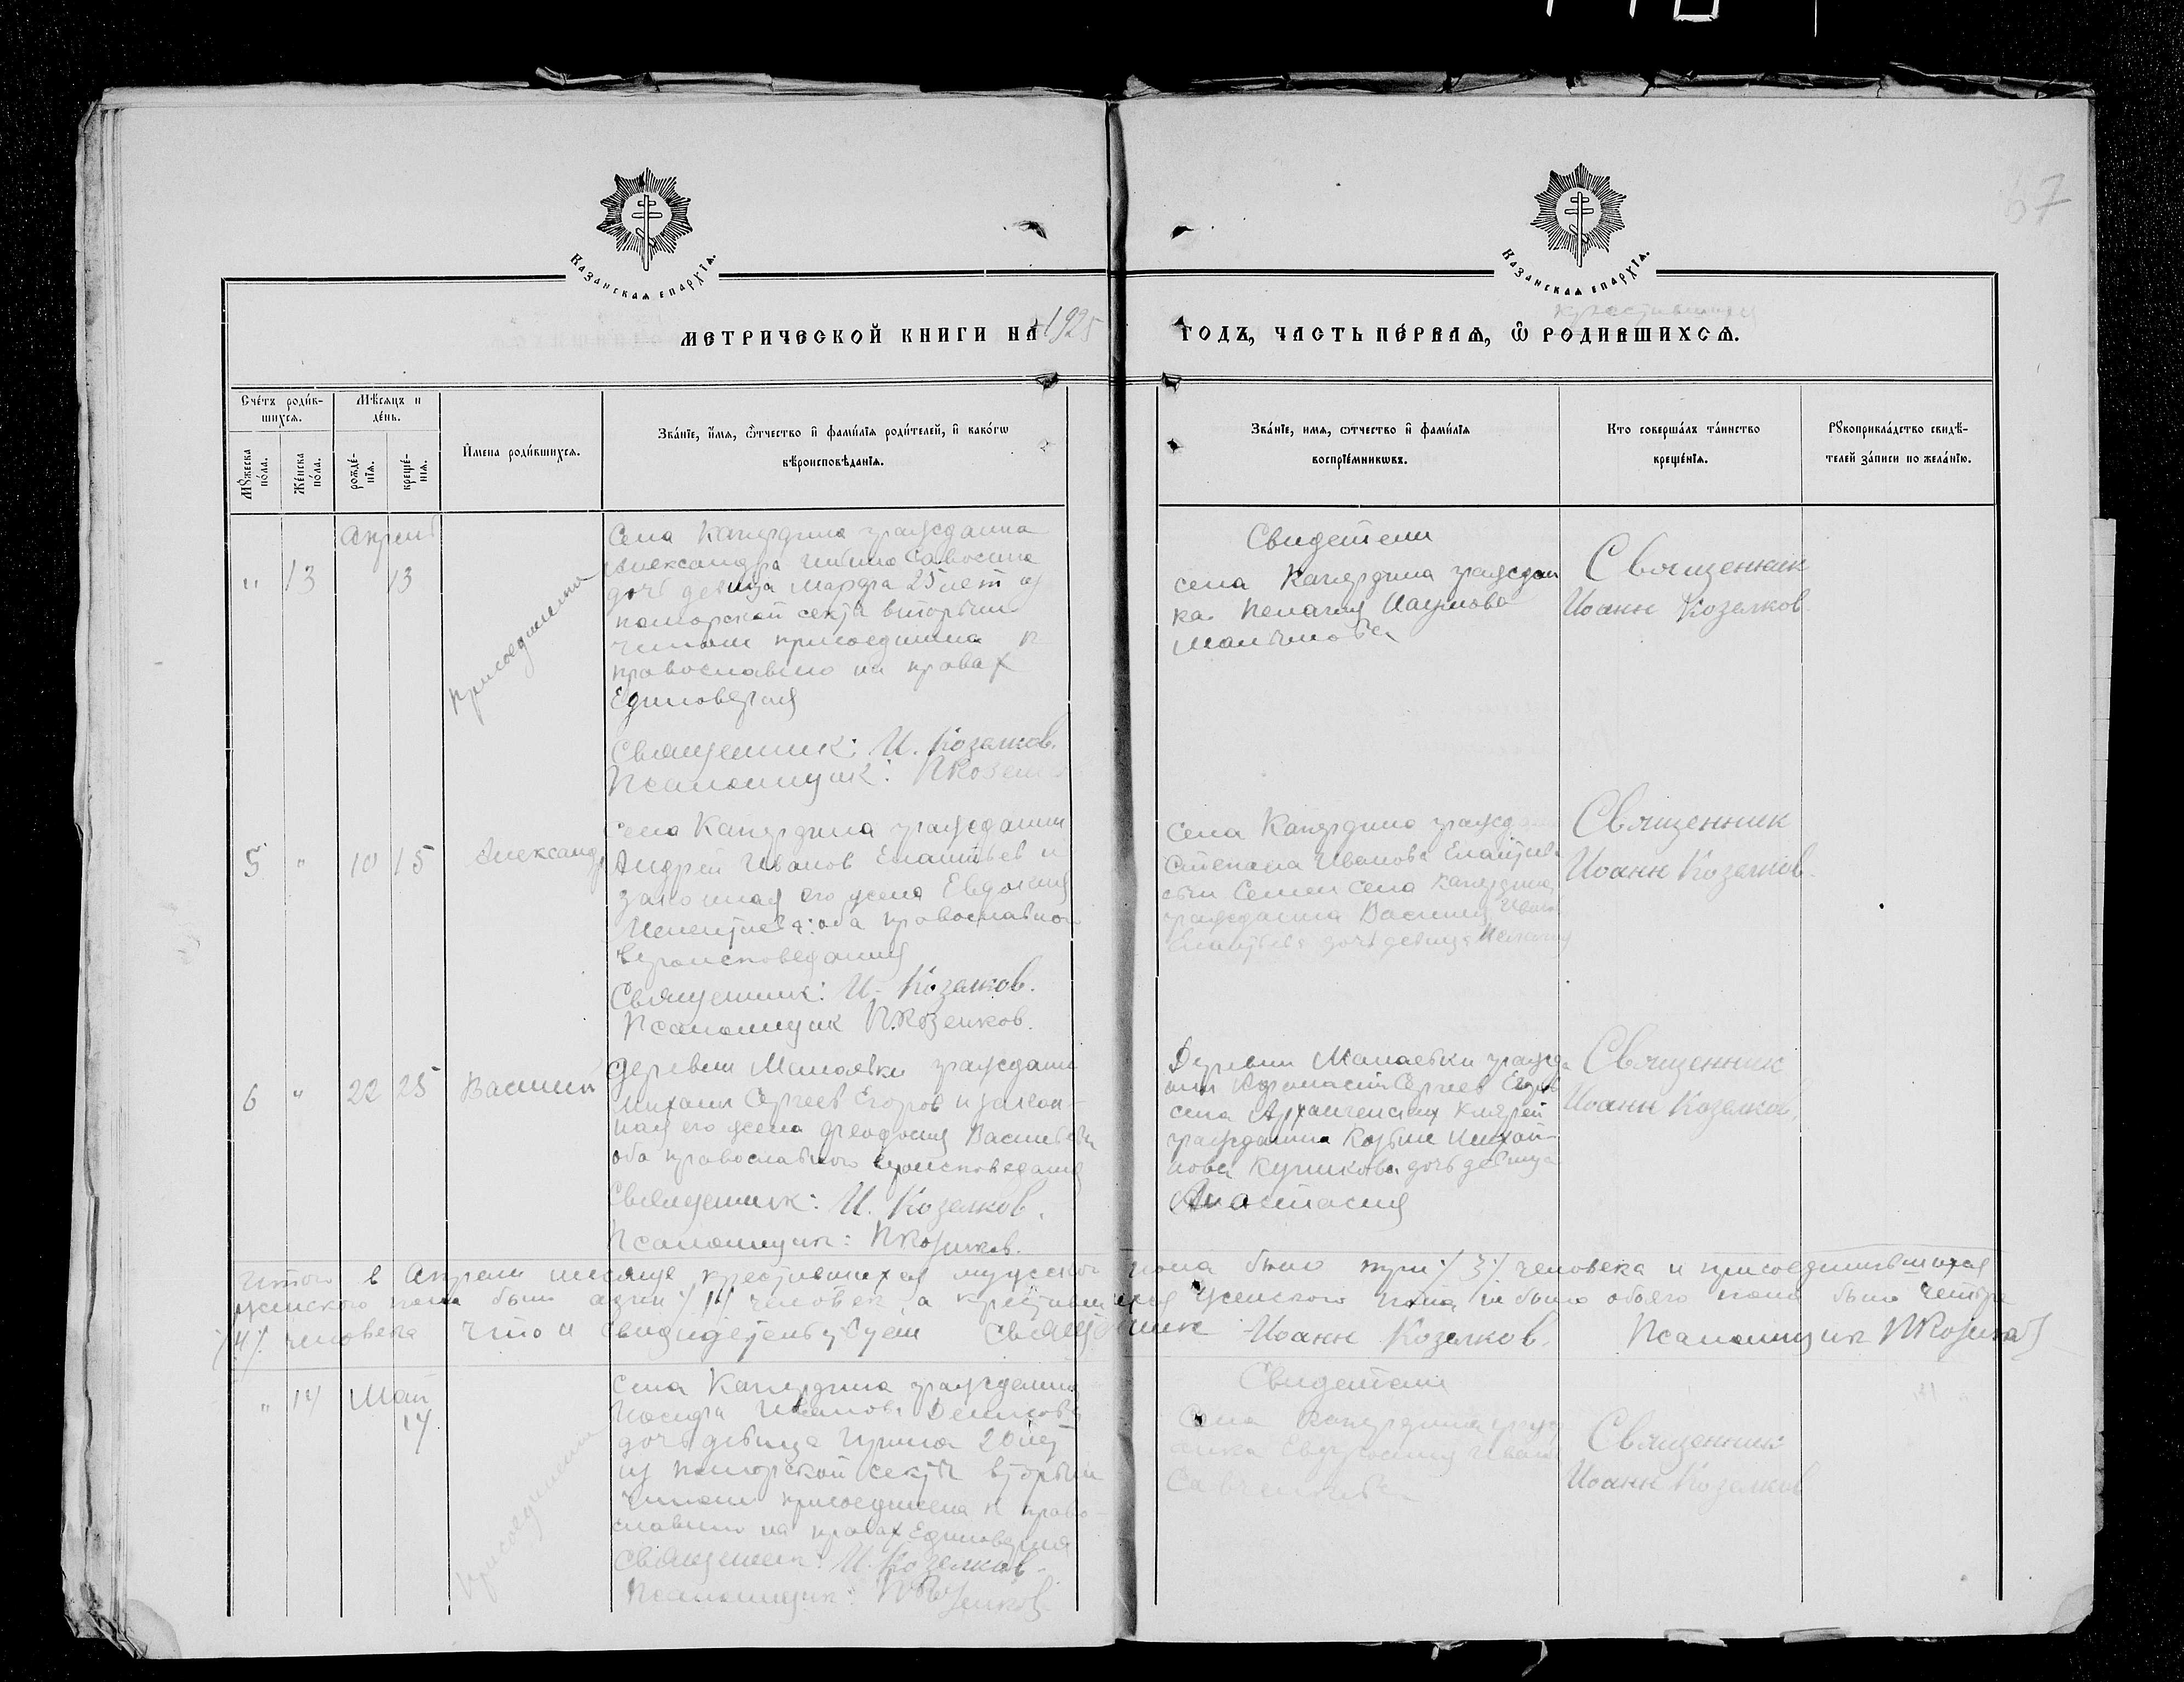 67
Казанская епархїѧ.
Казанская епархїѧ.
крестившихся
МЕТРИЧЕСКОЙ КНИГИ НА 1925
ГОДЪ, ЧАСТЬ ПЕ́РВАѦ, Ѽ РОДИВШИХСѦ.
Сче́тъ роди́в-
шихсѧ.
Мѣ́сѧцъ и
де́нь.
Мꙋ́жеска
по́ла.
Же́нска
по́ла.
рожде́-
нїѧ.
креще́-
нїѧ.
И҆мена роди́вшихсѧ.
Зва́нїе, и҆́мѧ, ѻ҆́тчество и҆ фами́лїѧ роди́телей, и҆ како́гѡ
вѣ́роисповѣ́данїѧ.
Зва́нїе, имѧ, ѻ҆́тчество и҆ фами́лїѧ
воспрїе́мникѡвъ.
Кто соверша́лъ та́инство
креще́нїѧ.
Рꙋкоприкла́дство свидѣ́-
телей за́писи по жела́нїю.
Апрель
" 13 13
присоединение
Села Капердина гражданина
Александра Савосина
дочь девица Марфа 25 лет из
поморской секты вторым
чином присоединина к
православию на правах
Единоверия
Священник: И. Козелков.
Псаломщик: П Козелк
Свидетели
села Капердина граждан
ка Пелагия Наумова
Священник
Иоанн Козелков.
5 " 10 15 Александр
Села Капердина гражданин
Андрей Иванов Елантьев и
законная его жена Евдокия
оба православного
вероисповедания
Священник: И. Козелков.
Псаломщик П. Козелков.
Села Капердина гражд
Степана Иванова
сын Семен села Капердина
гражданина Василия Ивано
дочь девица
Священник
Иоанн Козелков.
6 " 22 25 Василий
Деревни Мамаевки гражданин
Михаил Сергеев Егоров и закон-
ная его жена Феодосия Васильева
оба православного вероисповедания
Священник: И. Козелков.
Псаломщик: П Козелков.
Деревни Мамаевки гражда
нин Афанасий Сергеев Егоров
села Архангельских Клярей
гражданина Козьмы Михай-
лова дочь девица
Анастасия
Священник
Иоанн Козелков.
Итого в Апреле месяце крестившихся мужского пола было три /3/ человека и присоединившихся
женского пола был один /1/ человек, а крестившихся женского пола не было обоего пола было четыре
/4/ человека Что и свидидетельствуем Священник Иоанн Козелков. Псаломщик П Козелков
" 14 Май
14
присоединение
Села Капердина гражданина
Иосифа Иванова Денисова
дочь девица Ирина 20 лет
из поморской секты вторым
чином присоединена к право-
славию на правах Единоверия
Священник: И. Козелков.
Псаломщик: П Козелков
Свидетели
Села Капердина граж
анка Евфросиния Иван
Священник
Иоанн Козелков